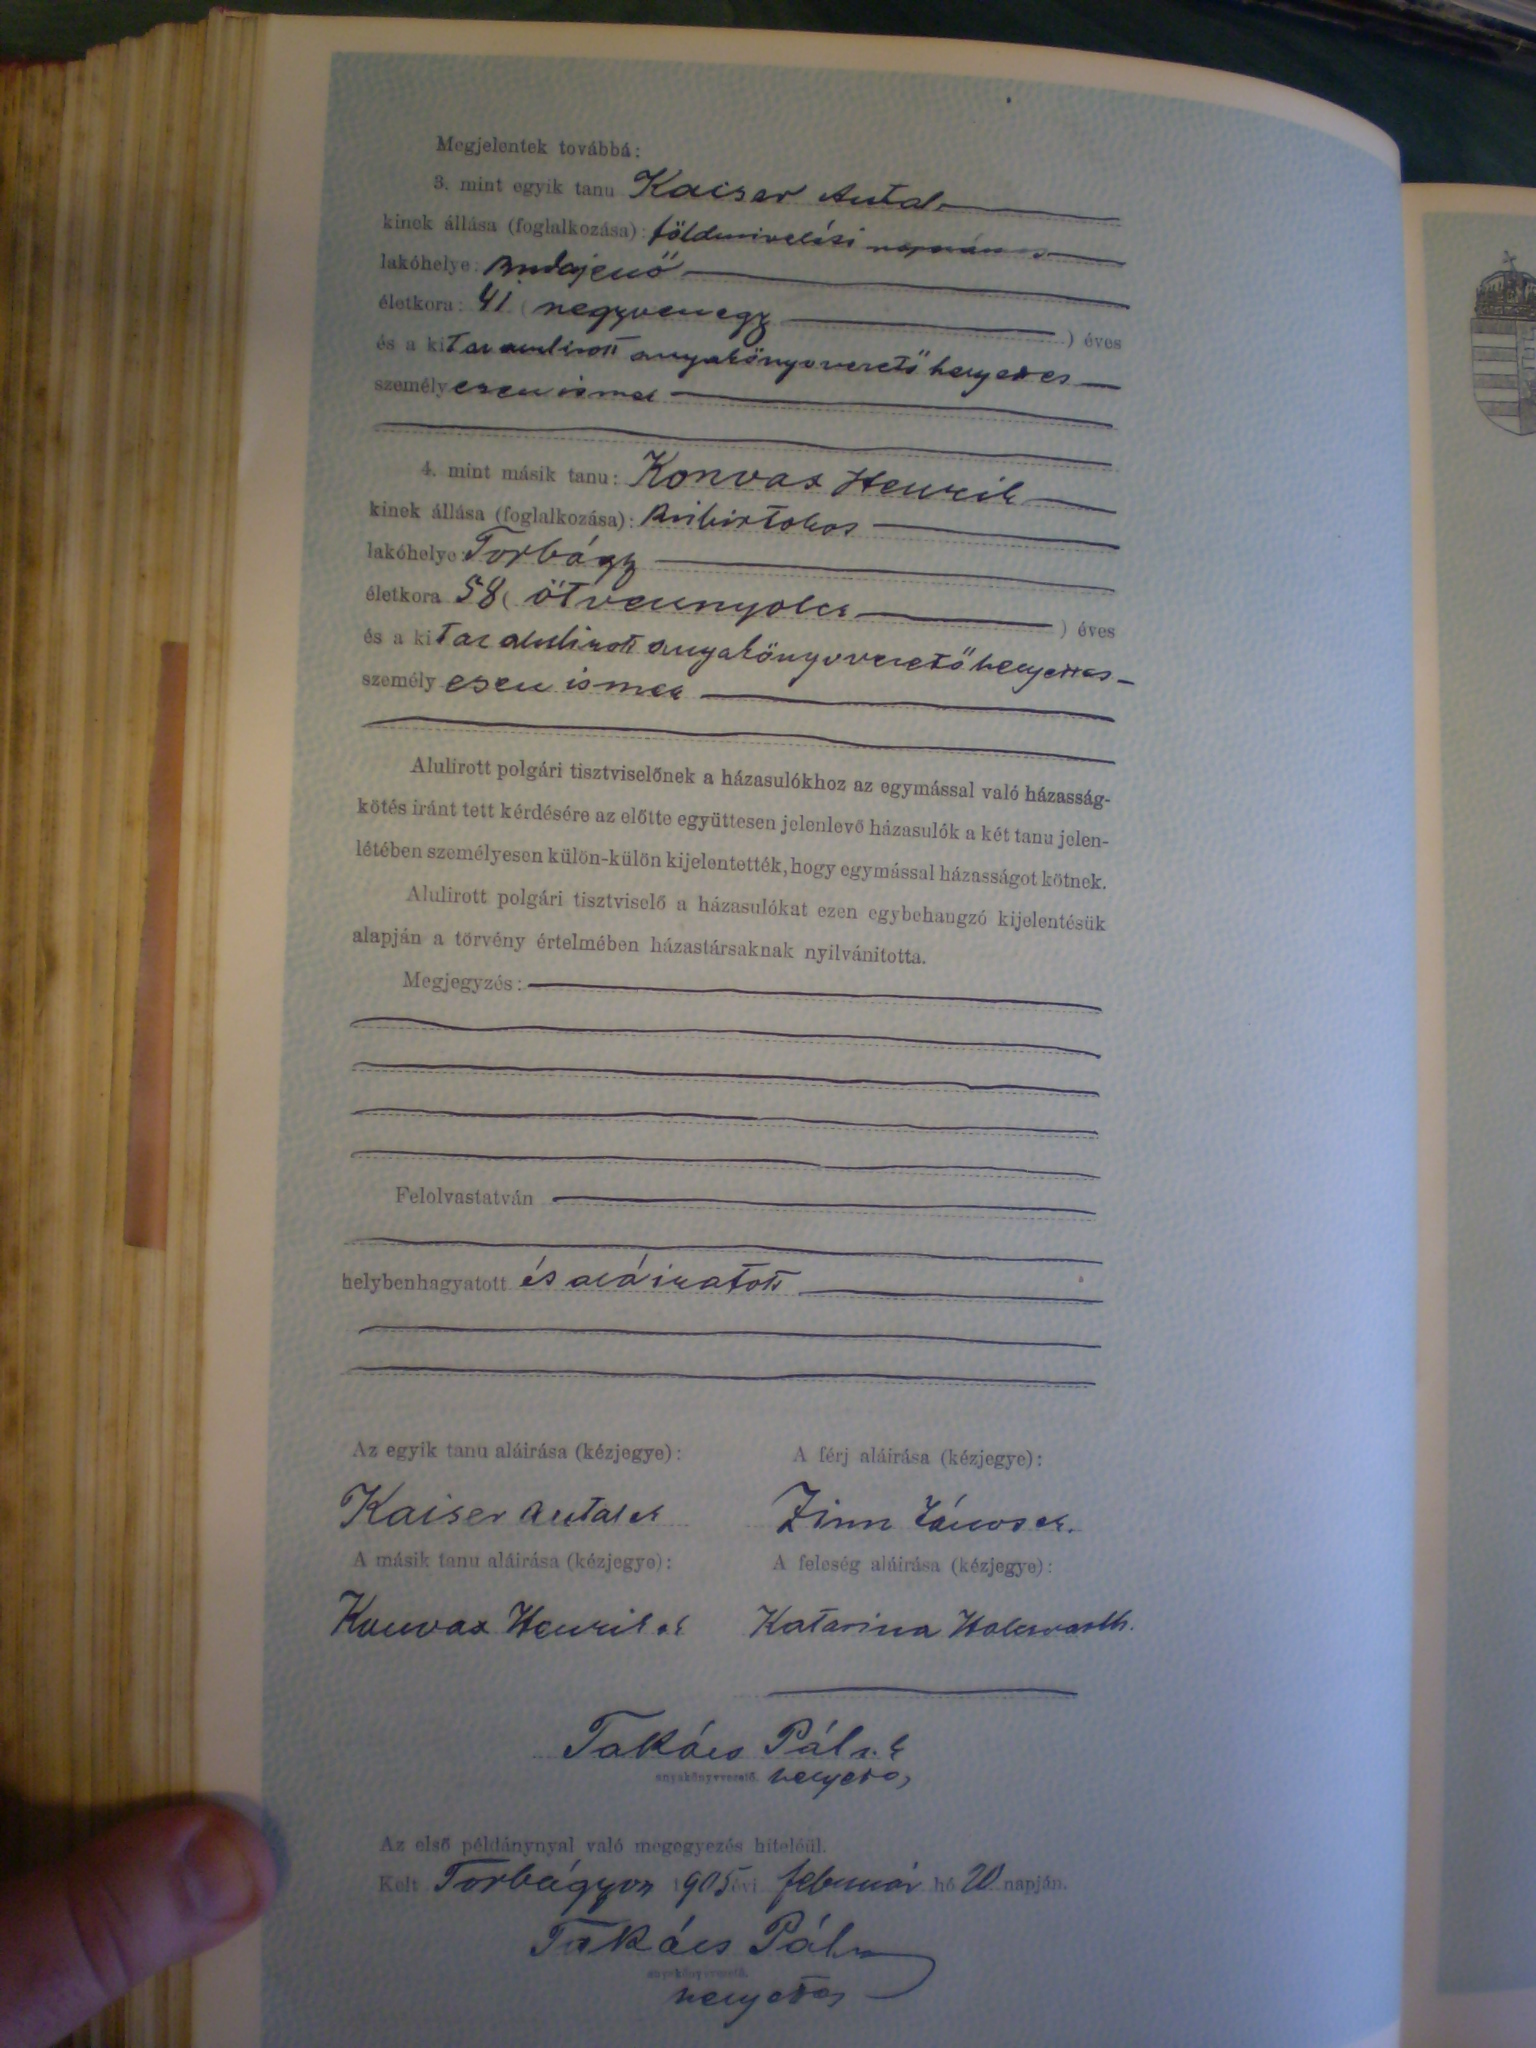 Megjelentek továbbá:
3. mint egyik tanu Kaiser Antal
kinek állása (foglalkozása): földmivelési napszámos
lakóhelye: Budajenő
életkora: 41 (negyvenegy) éves
és a kit az alulirott anyakönyvvezető helyettes
személyesen ismer
4. mint másik tanu: Konvax Henrik
kinek állása (foglalkozása): kisbirtokos
lakóhelye Torbágy
életkora 58 (ötvennyolc) éves
és a kit az alulirott anyakönyvvezető helyettes
személyesen ismer
Alulirott polgári tisztviselőnek a házasulókhoz az egymással való házasság-
kötés iránt tett kérdésére az előtte együttesen jelenlevő házasulók a két tanu jelen-
létében személyesen külön-külön kijelentették, hogy egymással házasságot kötnek.
Alulirott polgári tisztviselő a házasulókat ezen egybehangzó kijelentésük
alapján a törvény értelmében házastársaknak nyilvánitotta.
Megjegyzés:
Felolvastatván
helybenhagyatott és aláiratott
Az egyik tanu aláirása (kézjegye): A férj aláirása (kézjegye):
Kaiser Antal sk Zinn János sk.
A másik tanu aláirása (kézjegye): A feleség aláirása (kézjegye):
Konvax Henrik sk Katarina
Takács Pál s.k
anyakönyvvezető. helyettes
Az első példánynyal való megegyezés hiteléül.
Kelt Torbágyon 1905 évi február hó 20 napján.
Takács Pál
anyakönyvvezető.
helyettes